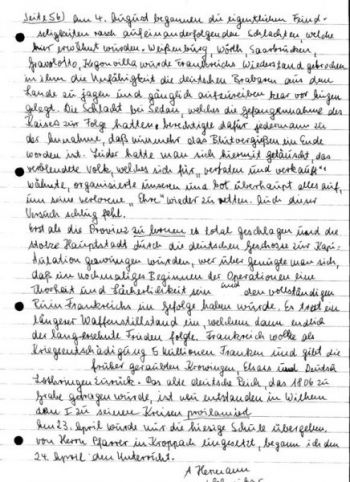 Seite 56) am 4. August begannen die eigentlichen Feind-
seligkeiten rasch aufeinanderfolgenden Schlachten, welche
hier erwähnt würden. Weißenburg, Wörth, Saarbrücken,
Gravolotte, würde Frankreichs Wiederstand gebrochen
in ihm die Unfähigkeit die deutschen Brabaren aus dem
Lande zu jagen und gänzlich aufzureiben klar vor Augen
gelegt. Die Schlacht bei Sedan, welches die Gefangennahme des
Kaisers zur Folge hatten, brechtigte dafür jedermann zu
der Annahme, daß nunmehr das Blutvergießen ein Ende
worden ist. Leider hatte man sich hiermit getäuscht, das
verblendete Volk, welches sich für "verfaten und verkauft"
wähnte, organisierte und bot überhaupt alles auf,
um seine verlorene "Ehre" wieder zu retten. Auch dieser
Versuch schlug fehl.
erst als die Provinz zu lernen es total geschlagen und die
stolze Hauptstadt durch die deutschen Geschosse zur Kapi-
tulation gezwungen würden, wer über genügte man sich,
daß ein nochmaliges Beginnen der Operationen eine
Thorheit und Lächerlichkeit sein und den vollständigen
Ruin Frankreichs in Gefolge haben würde. Es trat ein
längerer Waffenstillstand ein, welchem dann endlich
der langersehnte Frieden folgte. Frankreich wolle als
Kriegsentschädigung 5 millionen Franken und gibt die
früher geraubten Kronungen, Elsass und Deutsch
Lothringen zurück. Das alte deutsche Reich, das 1806 zu
Grabe getragen würde, ist neu entstanden in Wilhem
dem I zu seinem Kaisen proklamiert
Am 23. April würde mir die hiesige Schule übergeben,
von Herrn Pfarrer in Kroppach eingesetzt, begann ich den
24. April den Unterricht.
A Hermann